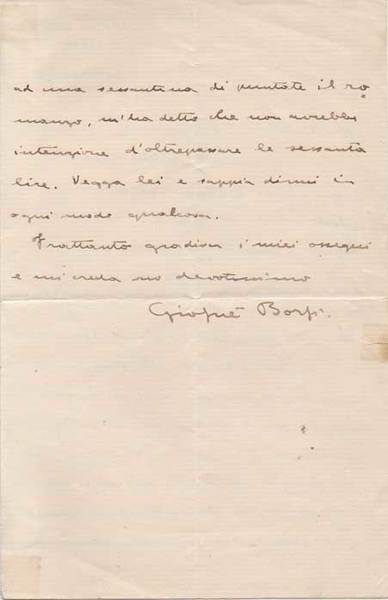 ad una sessantina di puntate il ro
manzo, m'ha detto che non avrebbe
intenzione d'oltrepassare le sessanta
lire. Vegga lei e sappia dirmi in
ogni modo qualcosa.
Frattanto gradisca i miei ossequi
e mi creda suo devotissimo
Giosuè Borsi.